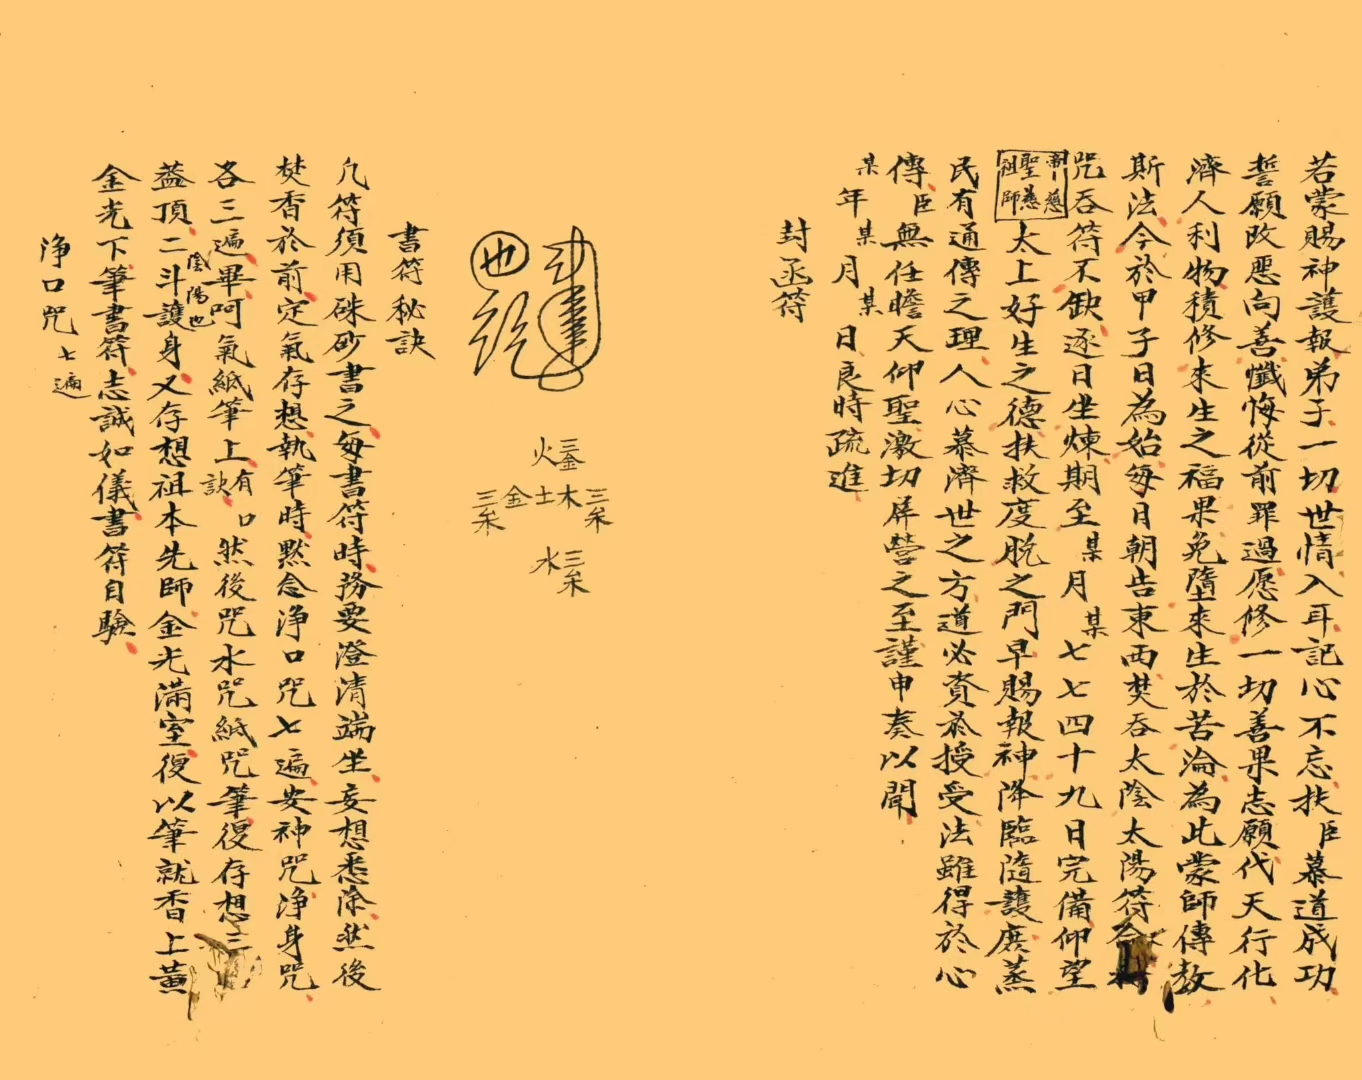 若蒙賜神護報弟子一切世情入耳記心不忘扶臣慕道成功
誓願改惡向善懺悔從前罪過愿修一切善果志願代天行化
濟人利物積修來生之福果免墮來生於苦淪為此蒙師傳教
斯法今於甲子日為始每日朝告東西焚吞太陰太陽符
咒吞符不缺逐日坐煉期至某月某七七四十九日完備仰望
慈
聖慈
祖師
太上好生之德扶救度脫之門早賜報神降臨隨護庶蒸
民有通傳之理人心慕濟世之方道必資於授受法雖得於心
傳臣無任瞻天仰聖激切屏營之至謹申奏以聞
某年某月某日良時疏進
封函符
三金
火
三木
木土金
三
水
三
書符秘訣
凡符須用硃砂書之每書符時務要澄清端坐妄想悉除然後
焚香於前定氣存想執筆時默念淨口咒七遍安神咒淨身咒
各三遍畢呵氣紙筆上有訣口然後咒水咒紙咒筆復存想三
蓋頂二斗陰陽也護身又存想祖本先師金光滿室復以筆就香上薰
金光下筆書符志誠如儀書符自驗
淨口咒七遍